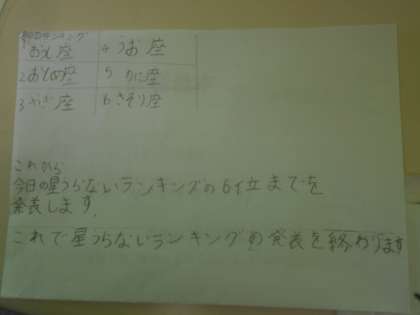 今日のランキング
おひつじ座 4 うお座
2 おとめ座 5 かに座
3 やぎ座 6 さそり座
これから
今日の星うらないランキングの6位までを
発表します。
これで星うらないランキングの発表を終わります